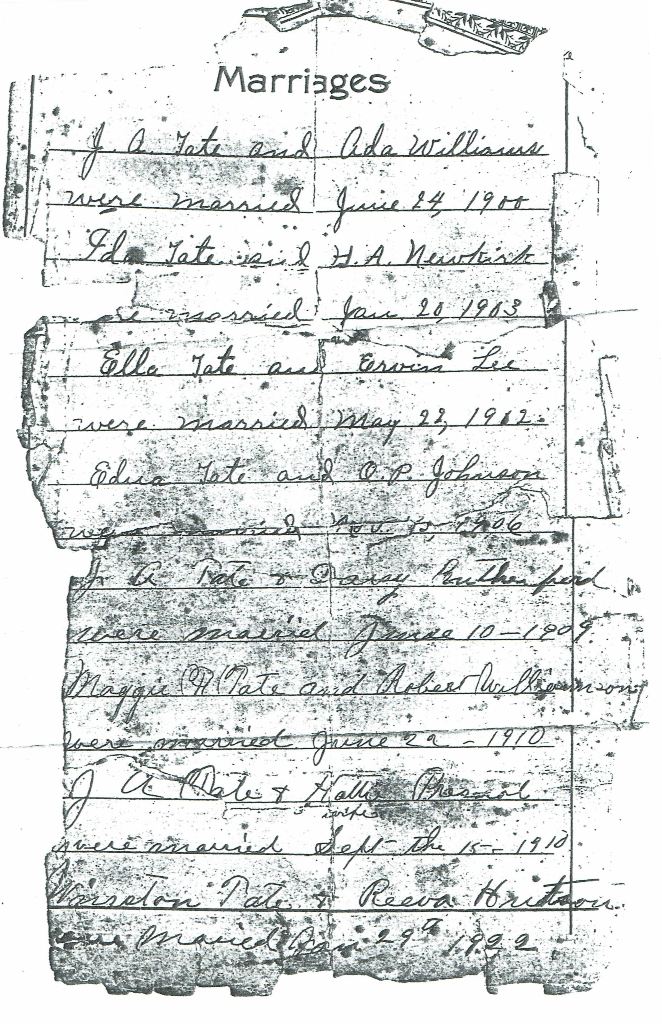 Marriages
J. A. Tate and Ada Williams
were married June 24, 1900
Ida Tate and H. A. Newkirk
married Jan 20, 1903
Ella Tate and Ervin Lee
were married May 22, 1902.
Edna Tate and O. P. Johnson
were married Nov. 1906
J. A Tate & Daisy Rutherford
were married June 10 - 1909
Maggie Tate and Robert Williamson
were married June 22 - 1910
J A Tate & Hattie
were married Sept the 15 - 1910
Winston Tate & Reeva
were Maried Jan 29th 1922